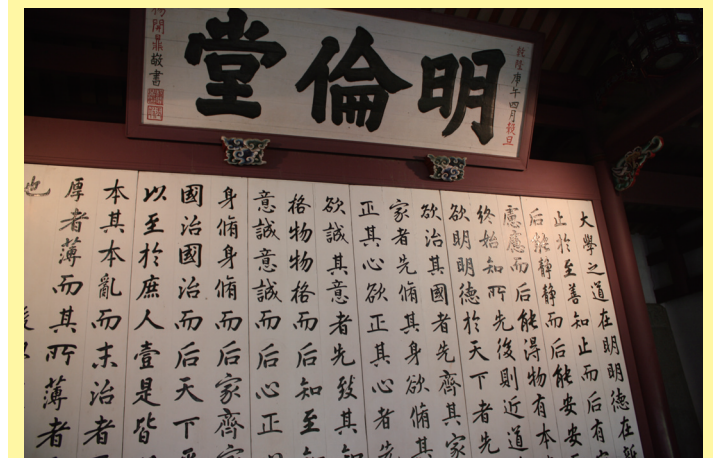 乾隆庚午四月穀旦
明倫堂
開鼎敬書
大學之道在明明德在
止於至善知止而后有
后能靜靜而后能安安
慮慮而后能得物有本
終始知所先後則近道
欲明明德於天下者先
欲治其國者先齊其家
家者先脩其身欲脩其
正其心欲正其心者先
欲誠其意者先致其知
格物物格而后知至
意誠意誠而后心正
身脩身脩而后家齊
國治國治而后天下
以至於庶人壹是皆
本其本亂而末治者
厚者薄而其所薄者
也